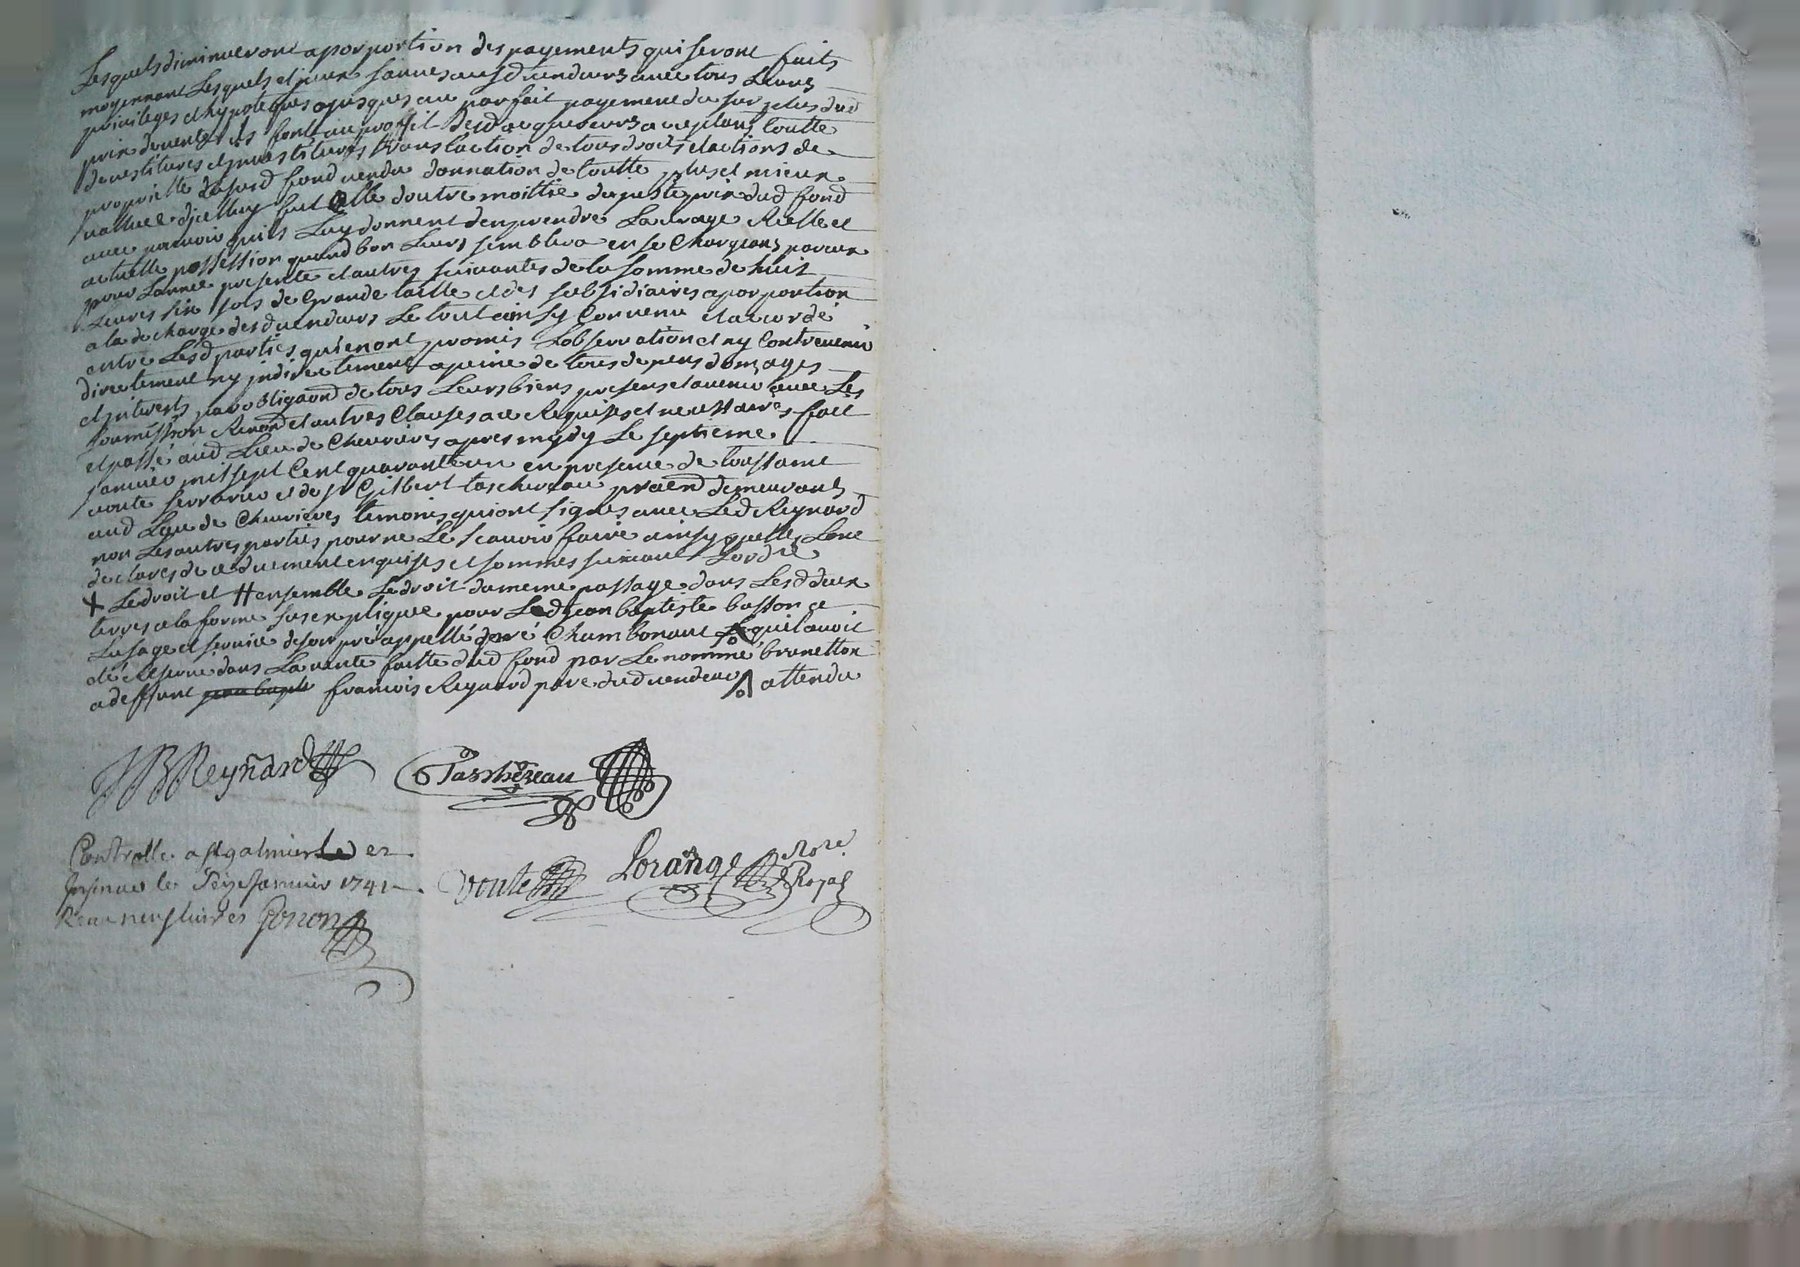 Lesquels diminueront a porportion des payements qui seront faits
moyennant Lesquels et jceux sauves ausd vendeurs avec tous Leurs
privileges et hypoteques jusques au parfait payement du surplus dud
prix de vente ils font au proffit desd acquereurs acceptans toutte
devestitures et jnvestitures translaction de tous droits et actions de
proprietté dususd fond vendu donnation de toutte plus et mieux
vallue djcelluy fut elle doutre moittié du juste prix dud fond
avec pouvoir quils Luy donnent den prendre La vraye Rielle et
actuelle possession quand bon Leurs semblera en se Chargeans par eux
pour Lannée presente et autres suivantes de la somme de huit
Livres six sols de Grande taille et des subsidiaires a porportion
a la decharge desd vendeurs Le tout ainsy Convenu et acordé
entre Lesd parties qui en ont promis Lobservation et ny Contrevenir
directement ny jndirectement a peine de tous depens domages
et jnterests par obligaond de tous Leurs biens presens et avenir avec Les
soumission Renond et autres Clauses a ce Requises et necessaires fait
et passé aud Lieu de Chevrieres apres mydy Le septieme
janvier mil sept Cent quarante un en presence de toussaint
voute serrurier et de sr Gilbert taschereau praend demeurants
aud Lieu de Chevrieres temoins qui ont signés avec Led Reynard
non Les autres parties pour ne Le scavoir faire ainsy quelles Lont
declarés de ce duement enquises et sommés suivant Lordre
+ Ledroit et # ensemble Le droit du meme passage dans Lesd deux
terres a la forme sus expliquée pour Led jean baptiste basson ce
Lusage et servire desoir pre appellé pré Chambonant qu'il avoit
été Reservé dans La vente faitte dud fond par Le nommé brunetton
a deffunt jean bapte francois Reynard pere dud vendeur attendu
JB Reynard
G Tascherau
Controlle a st galmier Le et
Jnsinué le Seize Janvier 1741
Reçu neuf livres Gonon
Voute
Lorange Nore Royal